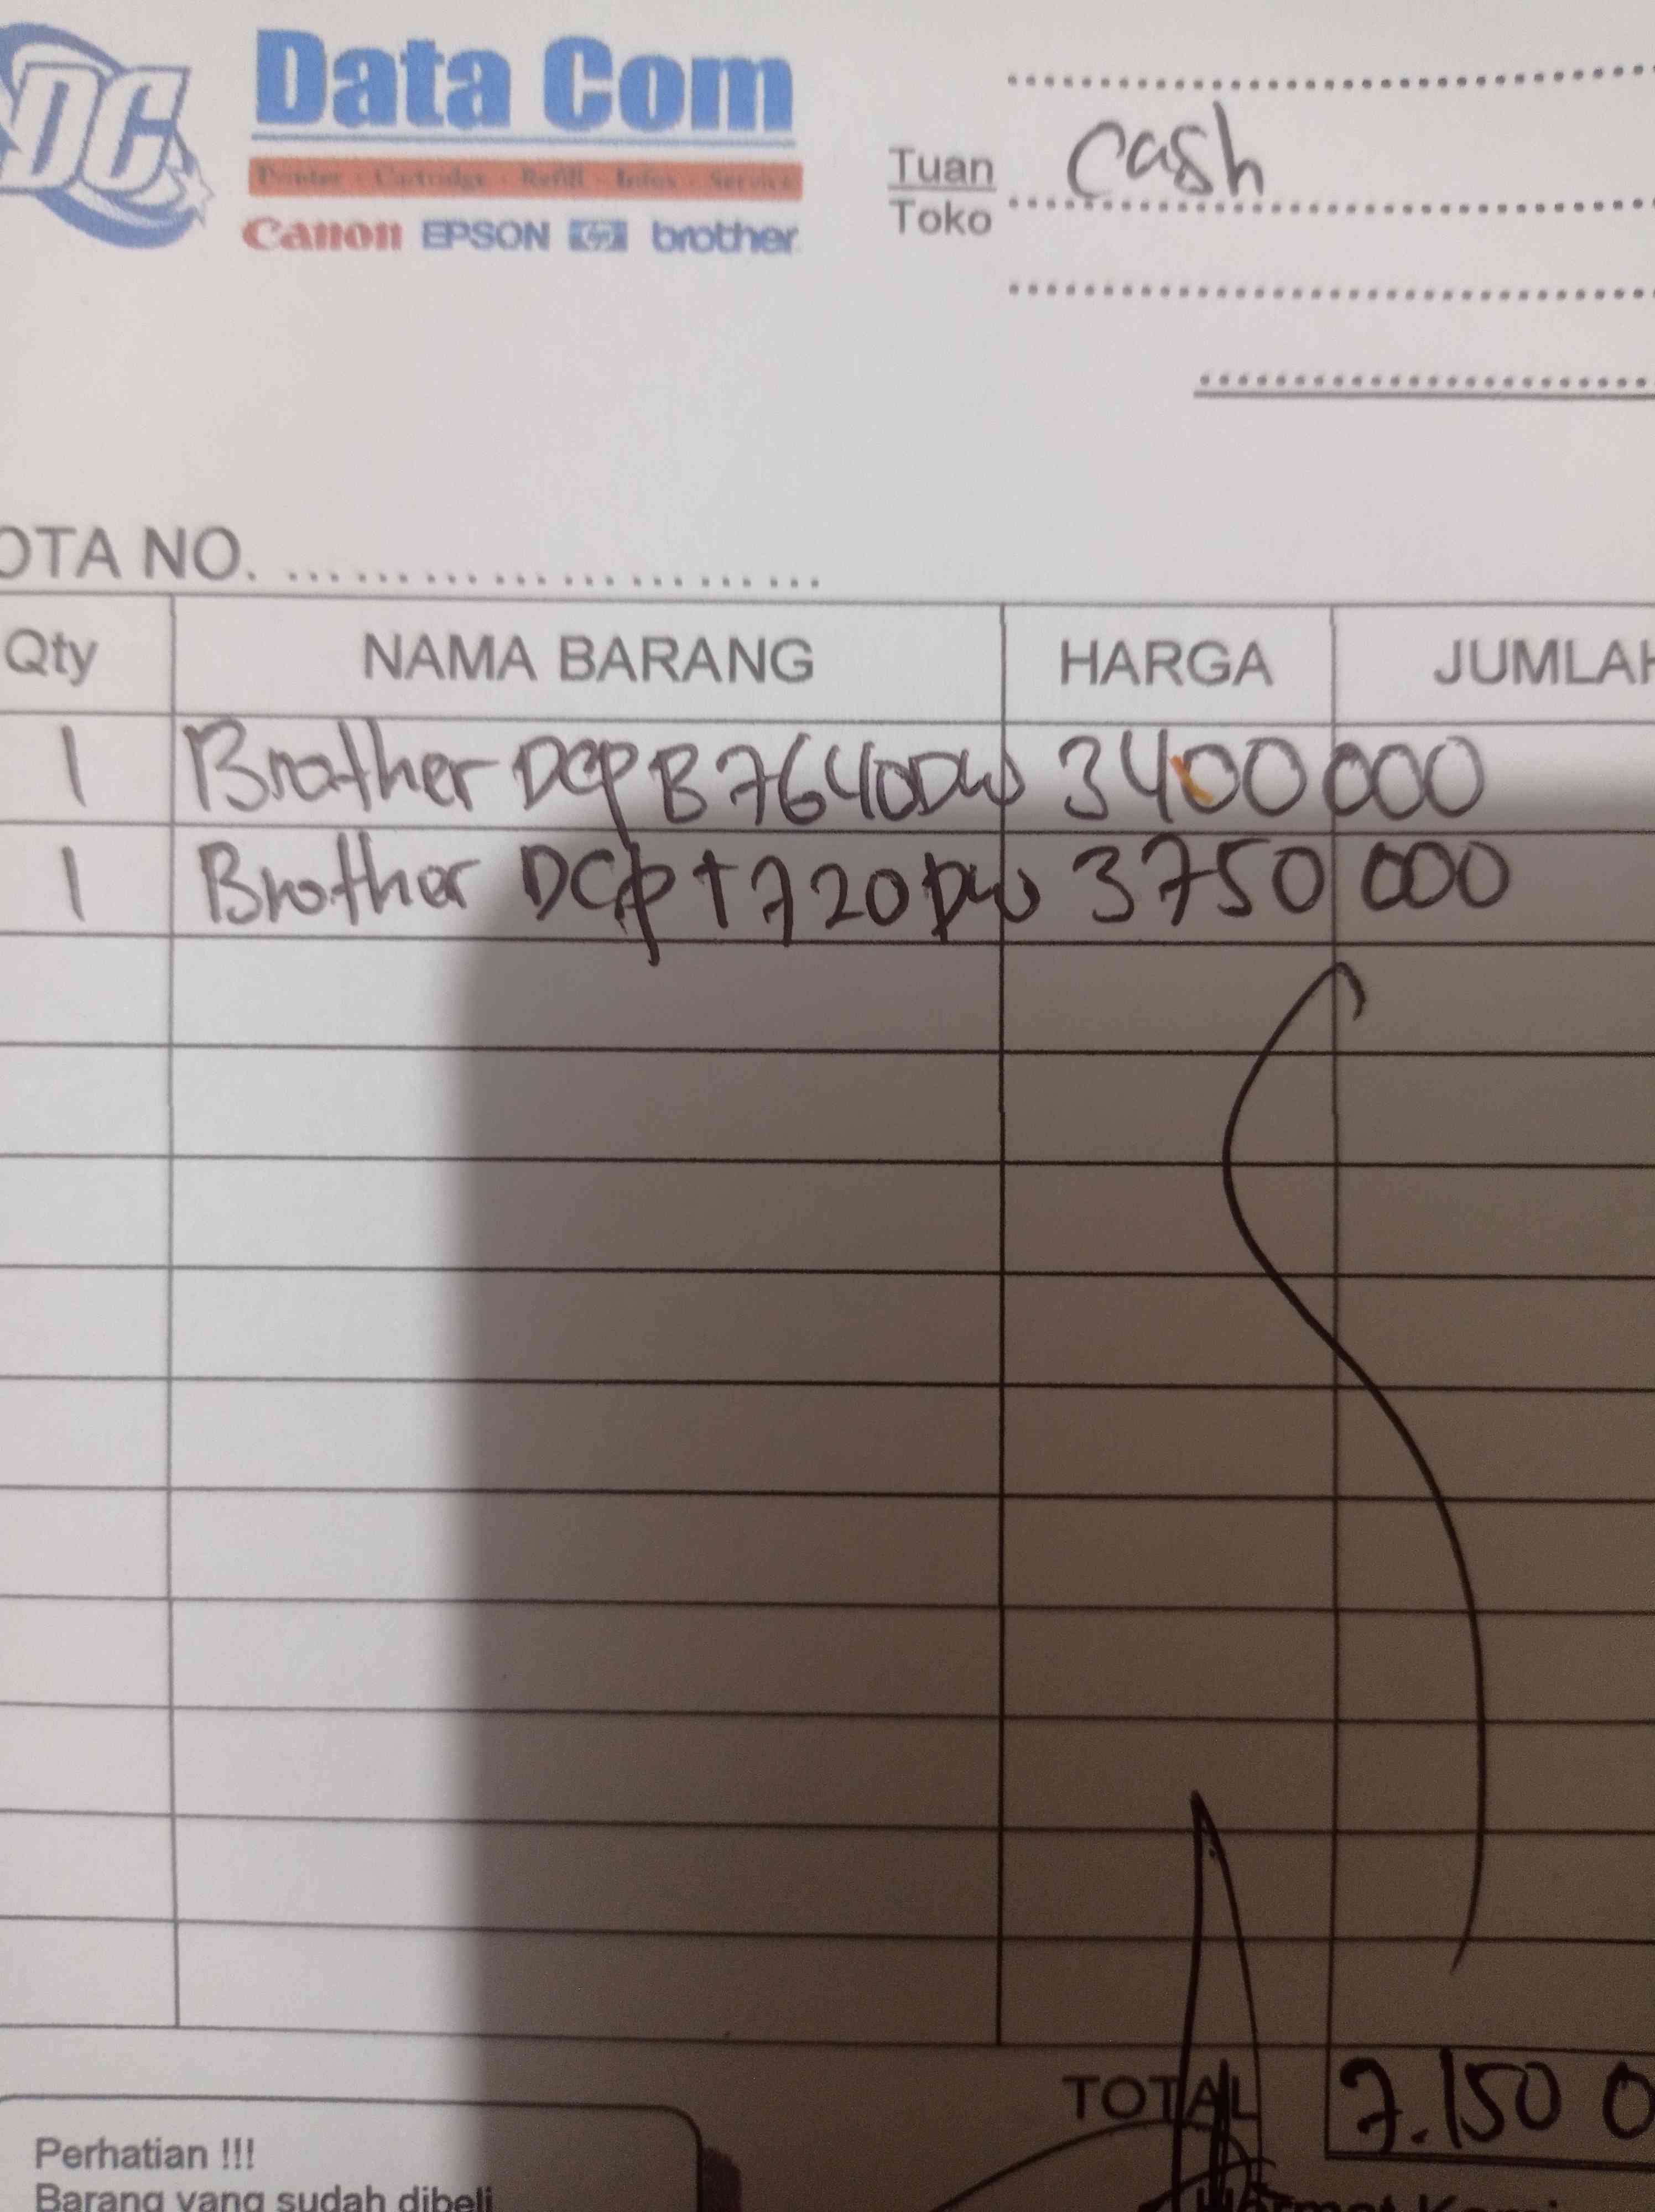 DC
Data Com
Printer - Cartridge - Refill - Infus - Service
Canon EPSON hp brother
Tuan
Toko
Cash
OTA NO.
Qty NAMA BARANG HARGA JUMLAH
1 Brother DCP B7640DW 3400 000
1 Brother DCP T720DW 3750 000
TOTAL 7.150 0
Perhatian !!!
Barang yang sudah dibeli